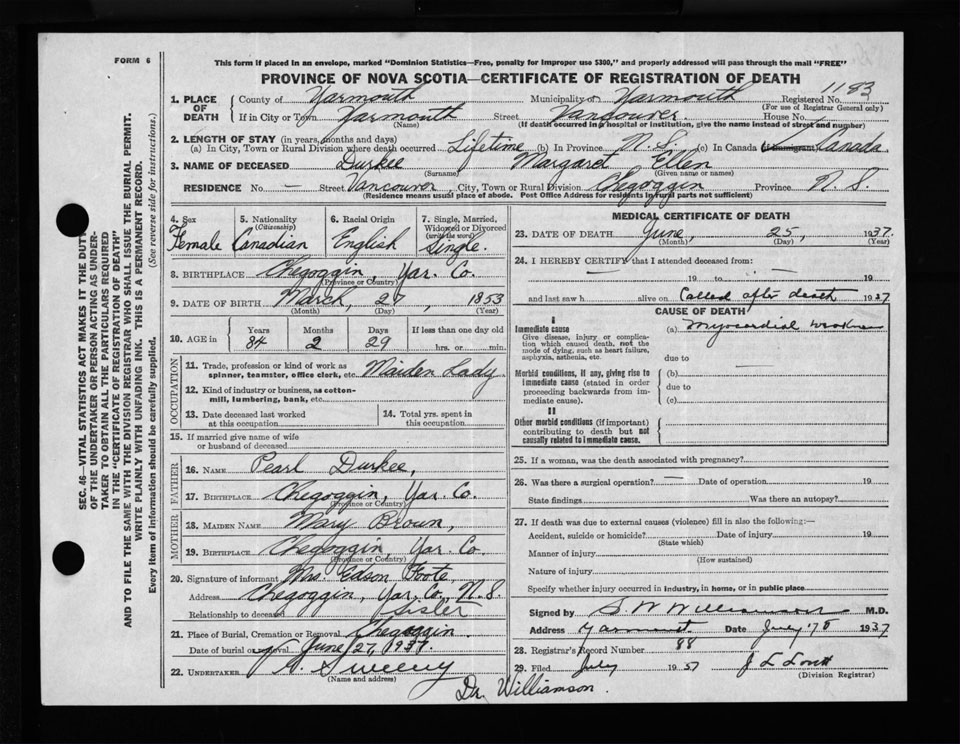 FORM 6
This form if placed in an envelope, marked "Dominion Statistics—Free, penalty for improper use $300," and properly addressed will pass through the mail "FREE"
PROVINCE OF NOVA SCOTIA—CERTIFICATE OF REGISTRATION OF DEATH
1183
1. PLACE OF DEATH County of Yarmouth Municipality of Yarmouth Registered No.
(For use of Registrar General only)
If in City or Town Yarmouth Street Vancouver House No.
(Name) (If death occurred in a hospital or institution, give the name instead of street and number)
2. LENGTH OF STAY (in years, months and days)
(a) In City, Town or Rural Division where death occurred Lifetime (b) In Province N.S. (c) In Canada (if immigrant) Canada.
3. NAME OF DECEASED Durkee Margaret Ellen
(Surname) (Given name or names)
RESIDENCE No. — Street Vancouver, City, Town or Rural Division Chegoggin Province N.S.
(Residence means usual place of abode. Post Office Address for residents in rural parts not sufficient)
4. Sex Female
5. Nationality (Citizenship) Canadian
6. Racial Origin English
7. Single, Married, Widowed or Divorced (write the word) Single.
8. BIRTHPLACE Chegoggin, Yar. Co.
(Province or Country)
9. DATE OF BIRTH March, 27, 1853
(Month) (Day) (Year)
10. AGE in Years 84 Months 2 Days 29 If less than one day old hrs. or min.
OCCUPATION
11. Trade, profession or kind of work as spinner, teamster, office clerk, etc. Maiden Lady
12. Kind of industry or business, as cotton-mill, lumbering, bank, etc.
13. Date deceased last worked at this occupation
14. Total yrs. spent in this occupation.
15. If married give name of wife or husband of deceased
FATHER
16. NAME Pearl Durkee,
17. BIRTHPLACE Chegoggin, Yar. Co.
(Province or Country)
MOTHER
18. MAIDEN NAME Mary Brown,
19. BIRTHPLACE Chegoggin, Yar. Co.
(Province or Country)
20. Signature of informant Mrs. Edson Foote
Address Chegoggin, Yar. Co., N.S.
Relationship to deceased Sister
21. Place of Burial, Cremation or Removal Chegoggin
Date of burial or removal June 27, 1937.
22. UNDERTAKER Sweeny
(Name and address)
Dr. Williamson.
MEDICAL CERTIFICATE OF DEATH
23. DATE OF DEATH June, 25, 1937.
(Month) (Day) (Year)
24. I HEREBY CERTIFY that I attended deceased from:
— 19 to — 19
and last saw h alive on Called after death 1937
CAUSE OF DEATH
I
Immediate cause (a) Myocardial
Give disease, injury or complication which caused death, not the mode of dying, such as heart failure, asphyxia, asthenia, etc.
due to
Morbid conditions, if any, giving rise to immediate cause (stated in order proceeding backwards from immediate cause).
(b) —
due to
(c)
II
Other morbid conditions (if important) contributing to death but not causally related to immediate cause.
25. If a woman, was the death associated with pregnancy?
26. Was there a surgical operation? — Date of operation 19
State findings Was there an autopsy?
27. If death was due to external causes (violence) fill in also the following:—
Accident, suicide or homicide? Date of injury 19
(State which)
Manner of injury
(How sustained)
Nature of injury
Specify whether injury occurred in industry, in home, or in public place
Signed by S W Williamson M.D.
Address Yarmouth Date July 1937
28. Registrar's Record Number 88
29. Filed July 1937
(Division Registrar)
SEC. 46—VITAL STATISTICS ACT MAKES IT THE DUTY
OF THE UNDERTAKER OR PERSON ACTING AS UNDER-
TAKER TO OBTAIN ALL THE PARTICULARS REQUIRED
IN THE "CERTIFICATE OF REGISTRATION OF DEATH"
AND TO FILE THE SAME WITH THE DIVISION REGISTRAR WHO SHALL ISSUE THE BURIAL PERMIT.
WRITE PLAINLY WITH UNFADING INK. THIS IS A PERMANENT RECORD.
Every item of information should be carefully supplied. (See reverse side for instructions.)